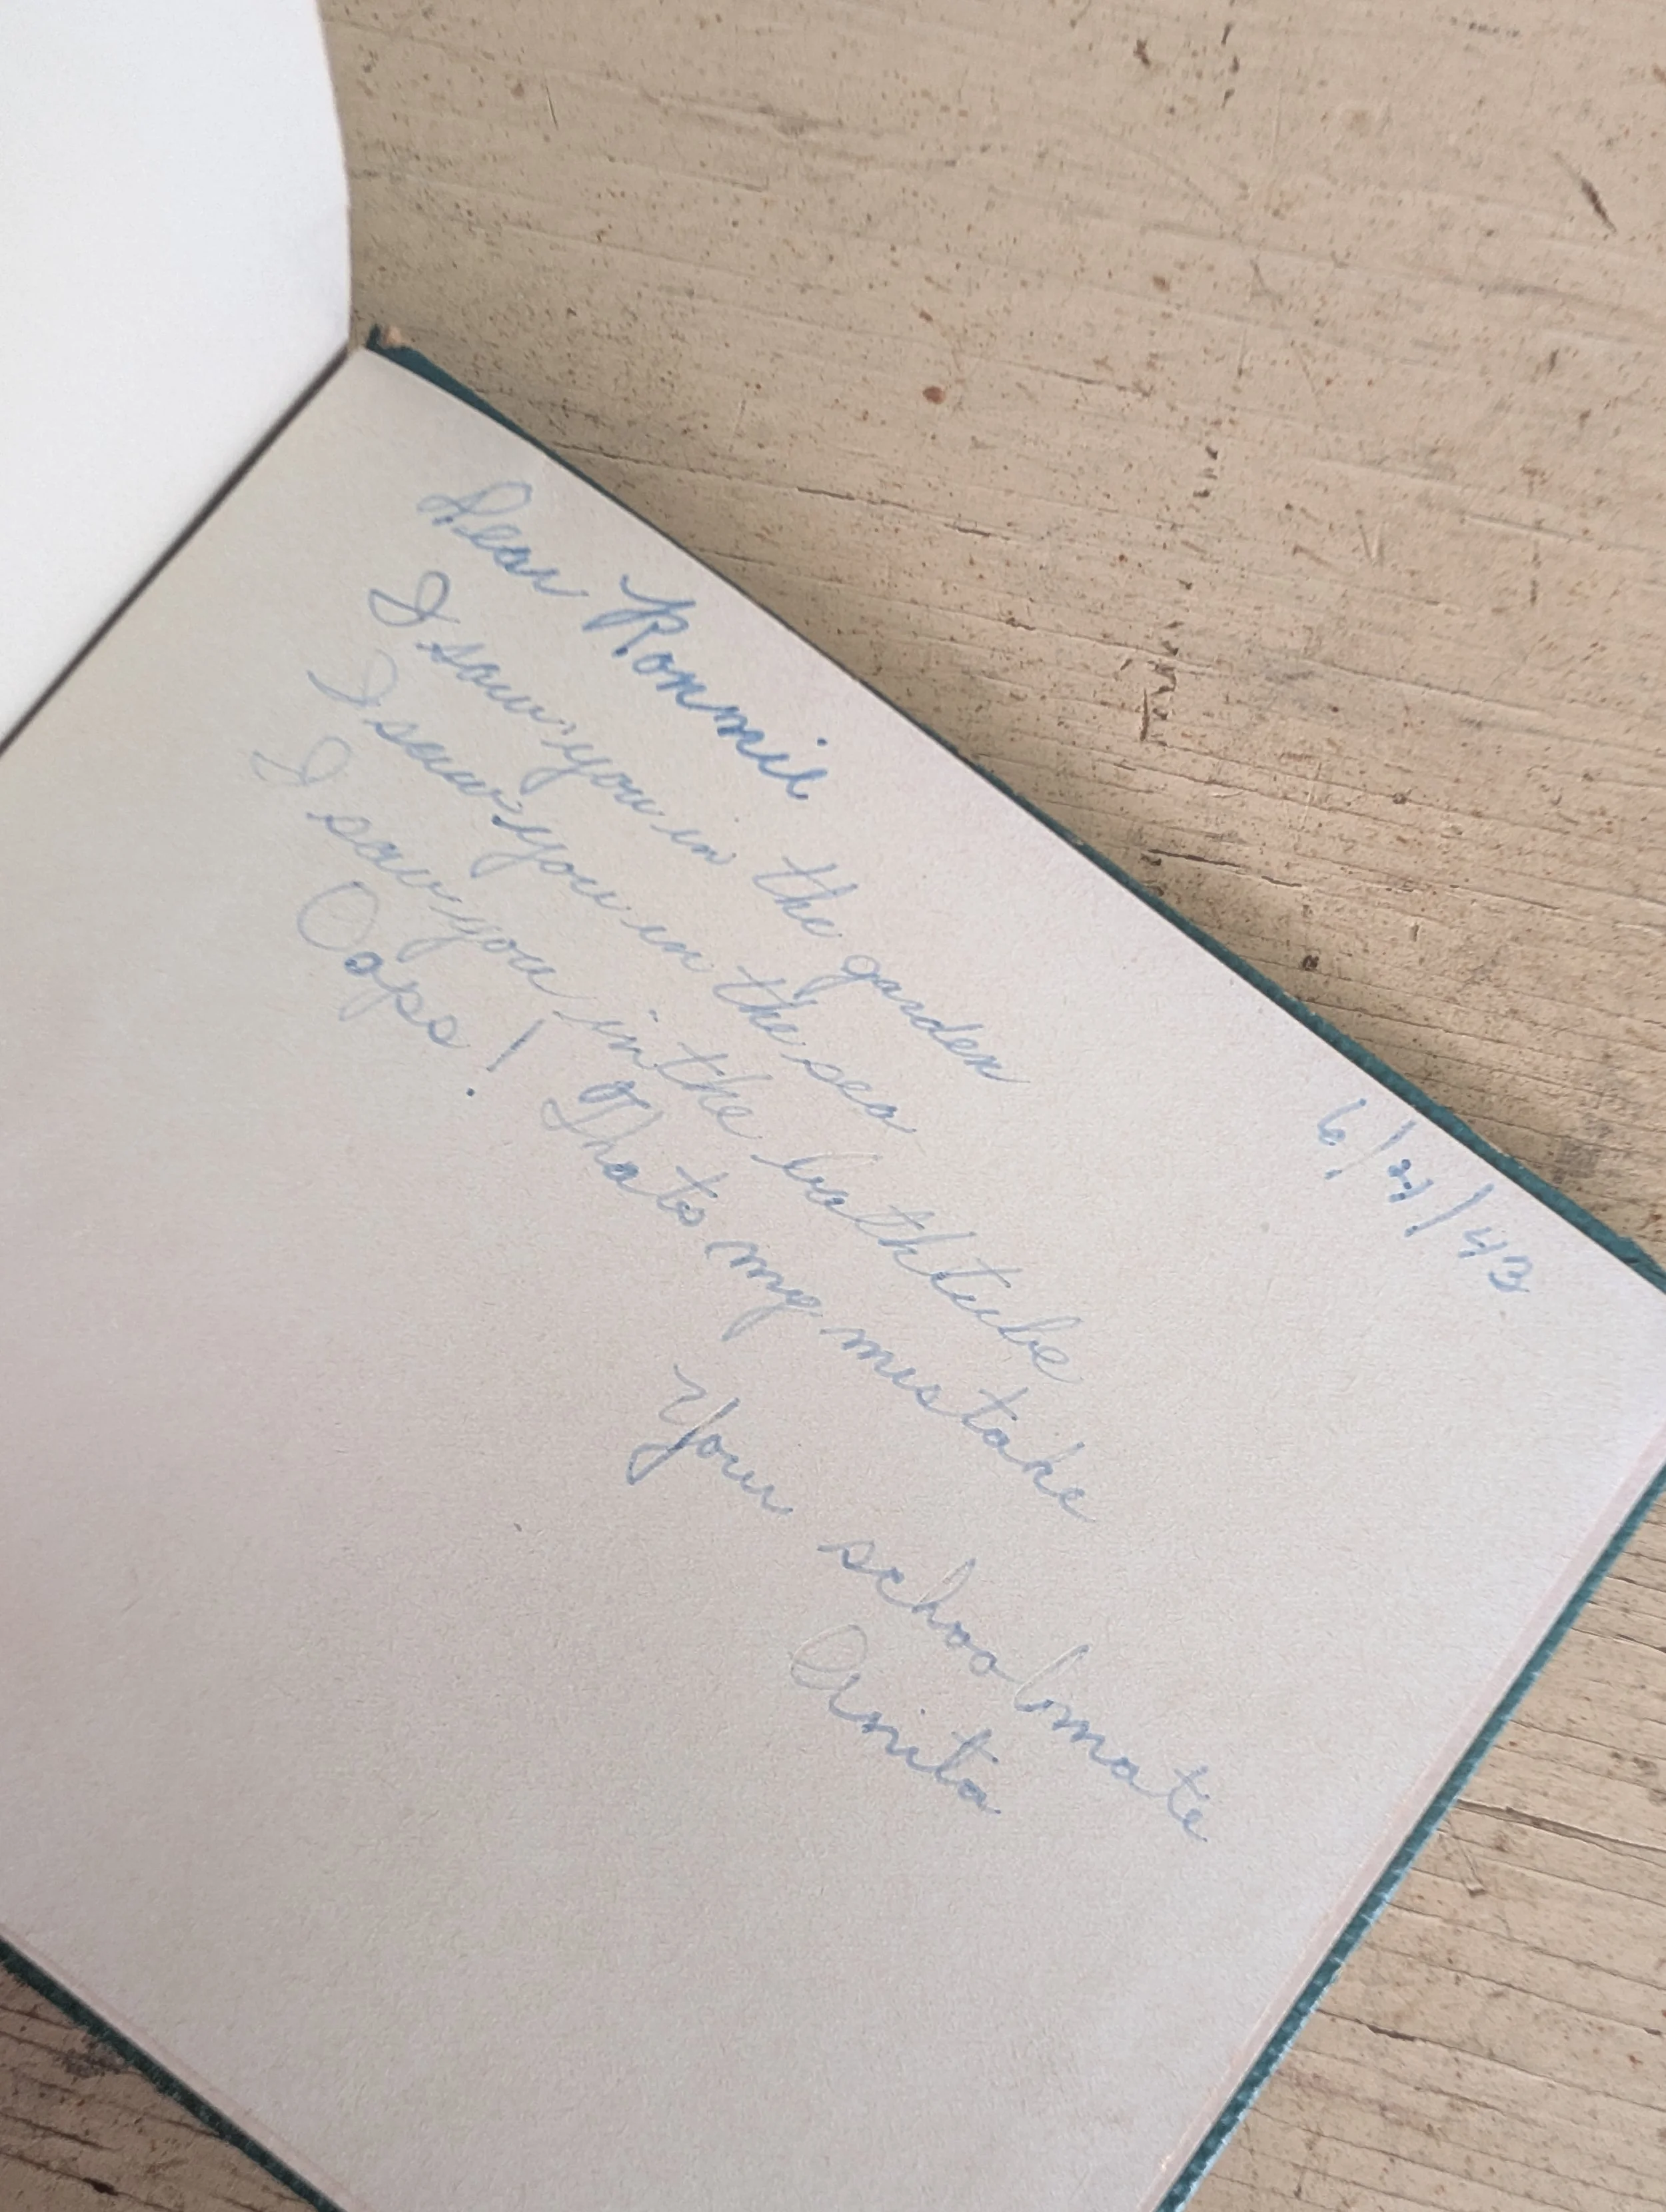 6/ /43
Dear Ronnie
I saw you in the garden
I saw you in the sea
I saw you in the bathtube
Oops! Thats my mistake
Your schoolmate
Anita